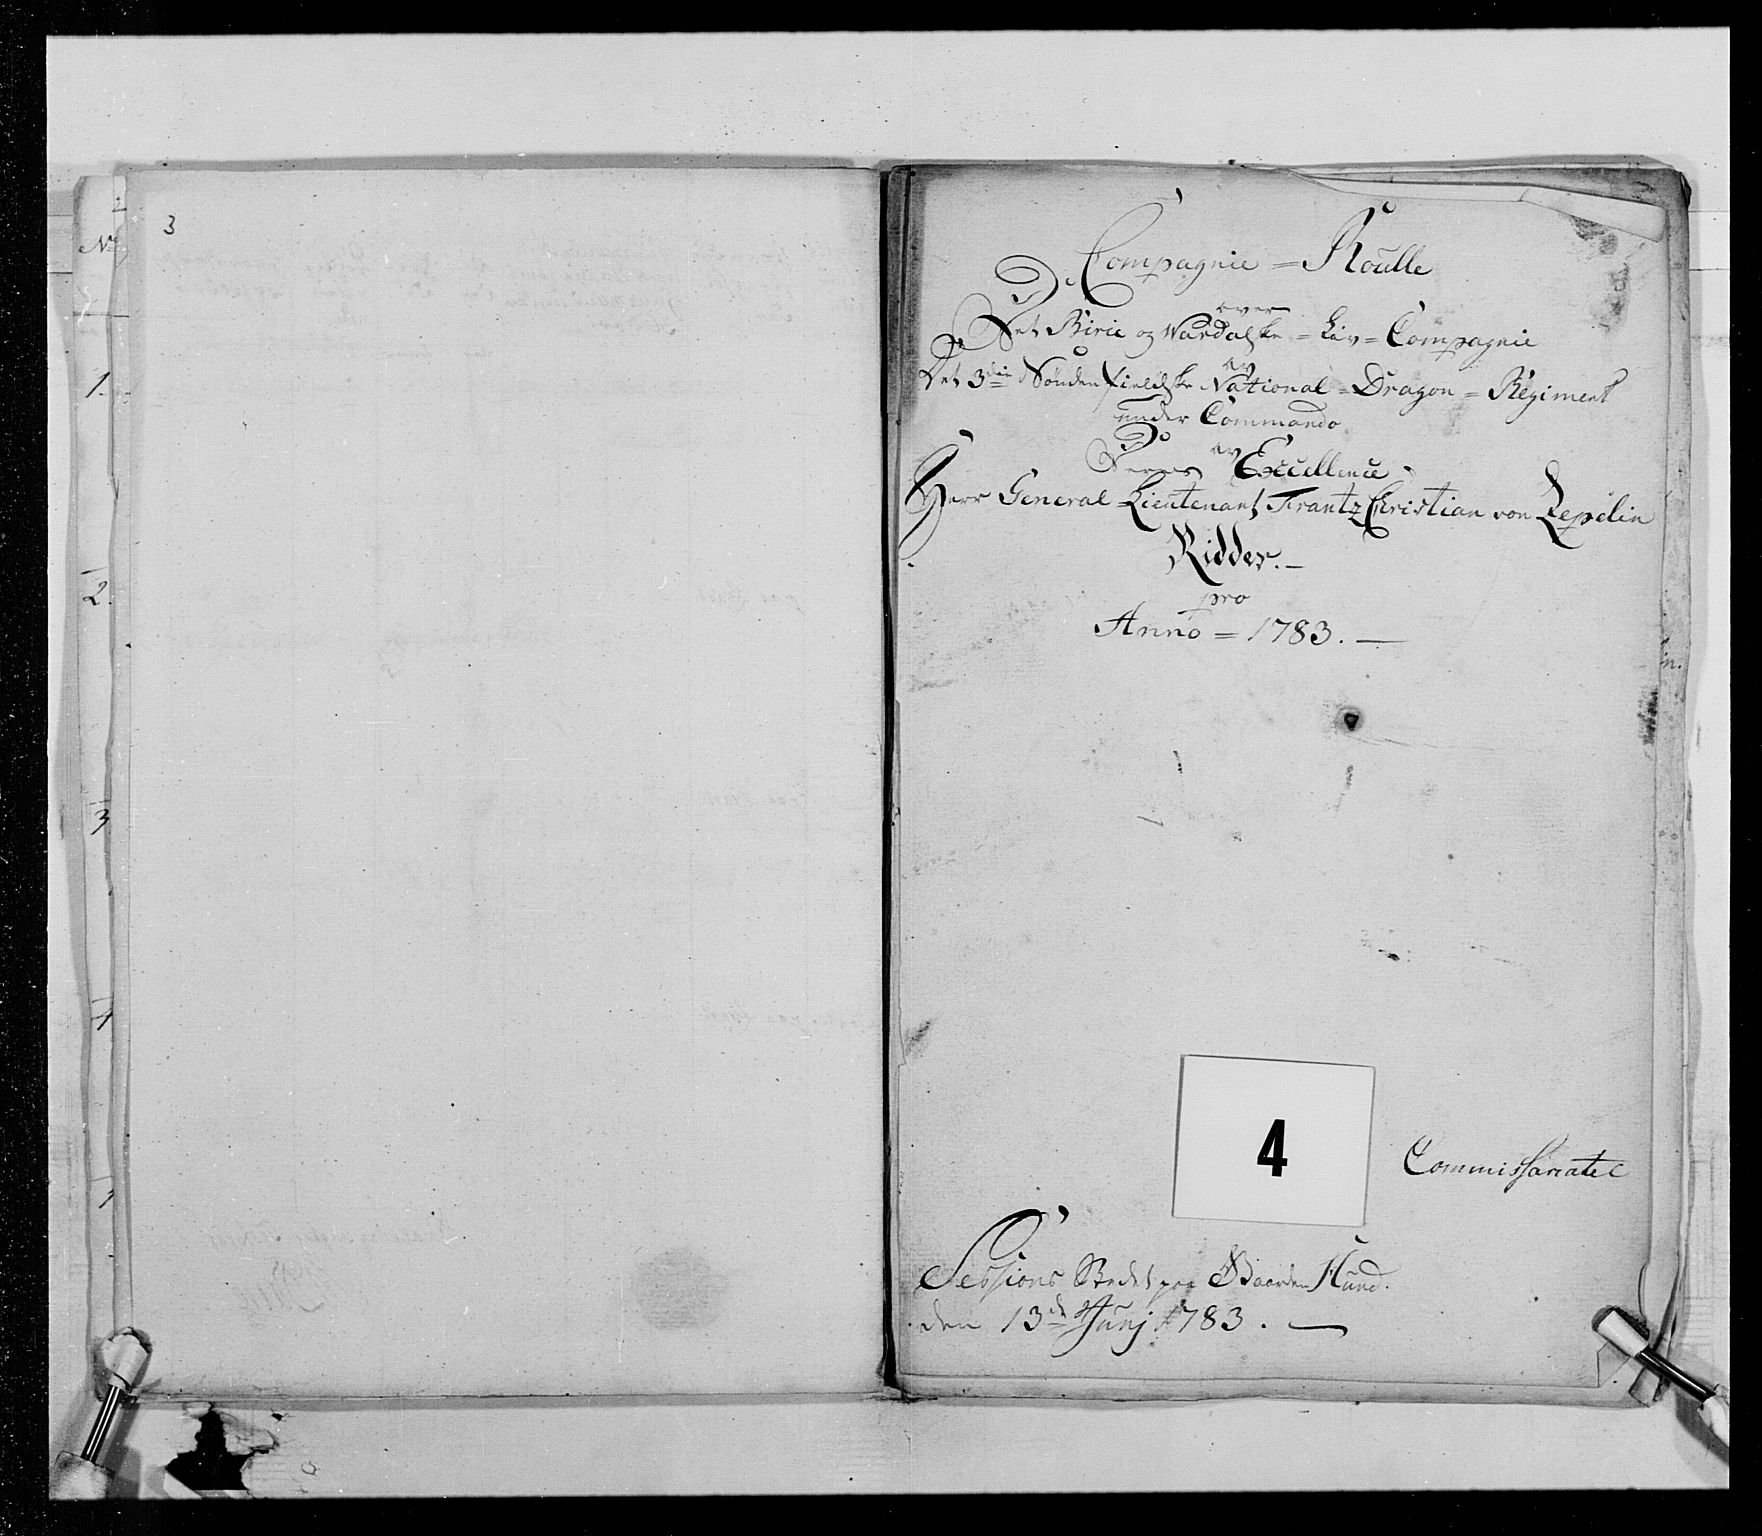 3
No
1.
2.
3
4
Compagnie = Roulle
over
Det Birie og Wardalske = Liv = Compagnie
av
Det 3die Søndenfieldske National = Dragon = Regiment
under Commando
av
Deres Excellence
Herr General Lieutenant Frantz Christian von Zepelin
Ridder. —
pro
Anno = 1783. —
4
Commissariatet
Sessions Stedet paa Gaarden Hund.
den 13de Junj 1783. —